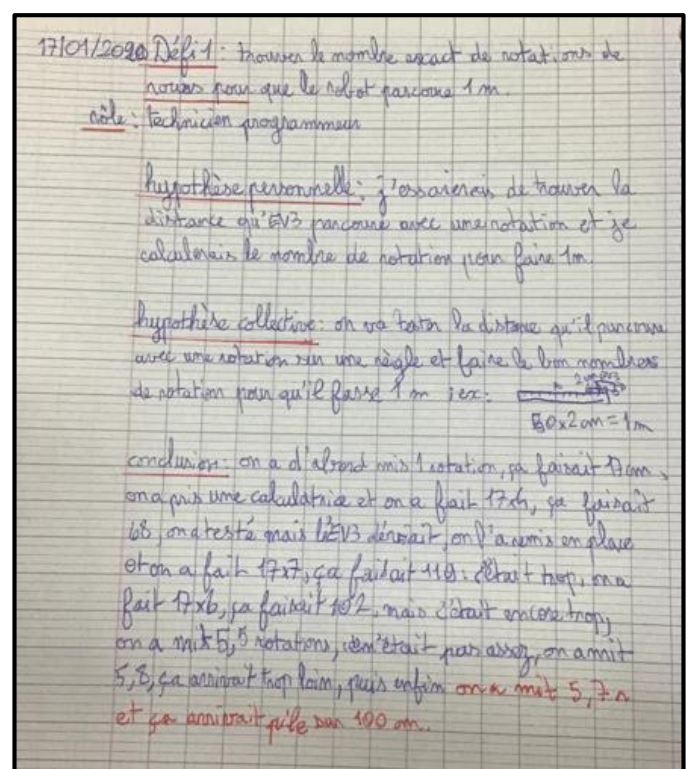 17/01/2020 Défi 1 : trouver le nombre exact de rotations de
roues pour que le robot parcoure 1 m.
rôle : technicien programmeur
hypothèse personnelle : j'essaierais de trouver la
distance qu'EV3 parcoure avec une rotation et je
calculerais le nombre de rotation pour faire 1m.
hypothèse collective : on va tester la distance qu'il parcoure
avec une rotation sur une règle et faire le bon nombres
de rotation pour qu'il fasse 1 m ex :
50x2cm=1m
conclusion : on a d'abord mis 1 rotation, ça faisait 17cm,
on a pris une calculatrice et on a fait 17x4, ça faisait
68, on a testé mais l'EV3 déviait, on l'a remis en place
et on a fait 17x7, ça faisait 119 : c'était trop, on a
fait 17x6, ça faisait 102, mais c'était encore trop,
on a mit 5,5 rotations, ce n'était pas assez, on a mit
5,8, ça arrivait trop loin, puis enfin on a mit 5,7 r
et ça arrivait pile sur 100 cm.